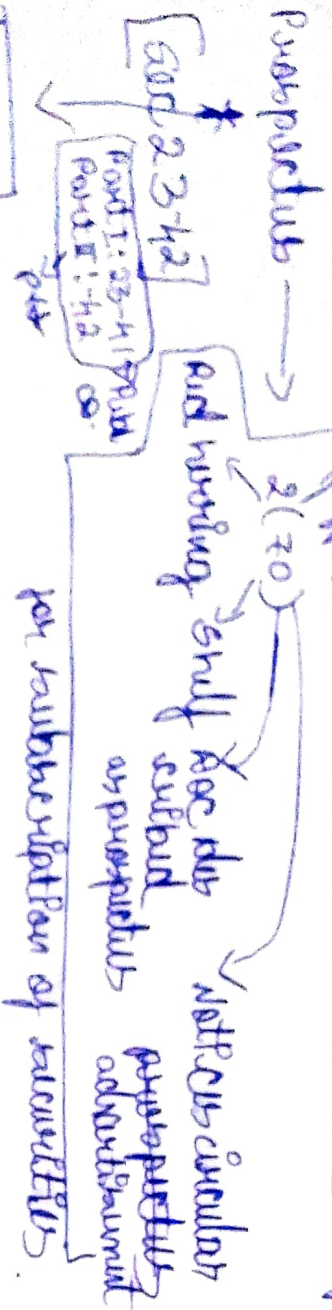 Prospectus → 2(70)
[Sec 23-42]
Part I: 23-41
Part II: 42
Pvt
Red herring
Shelf
Doc des
cribed
as prospectus
Notice circular
prospectus
advertisement
for subscription of securities